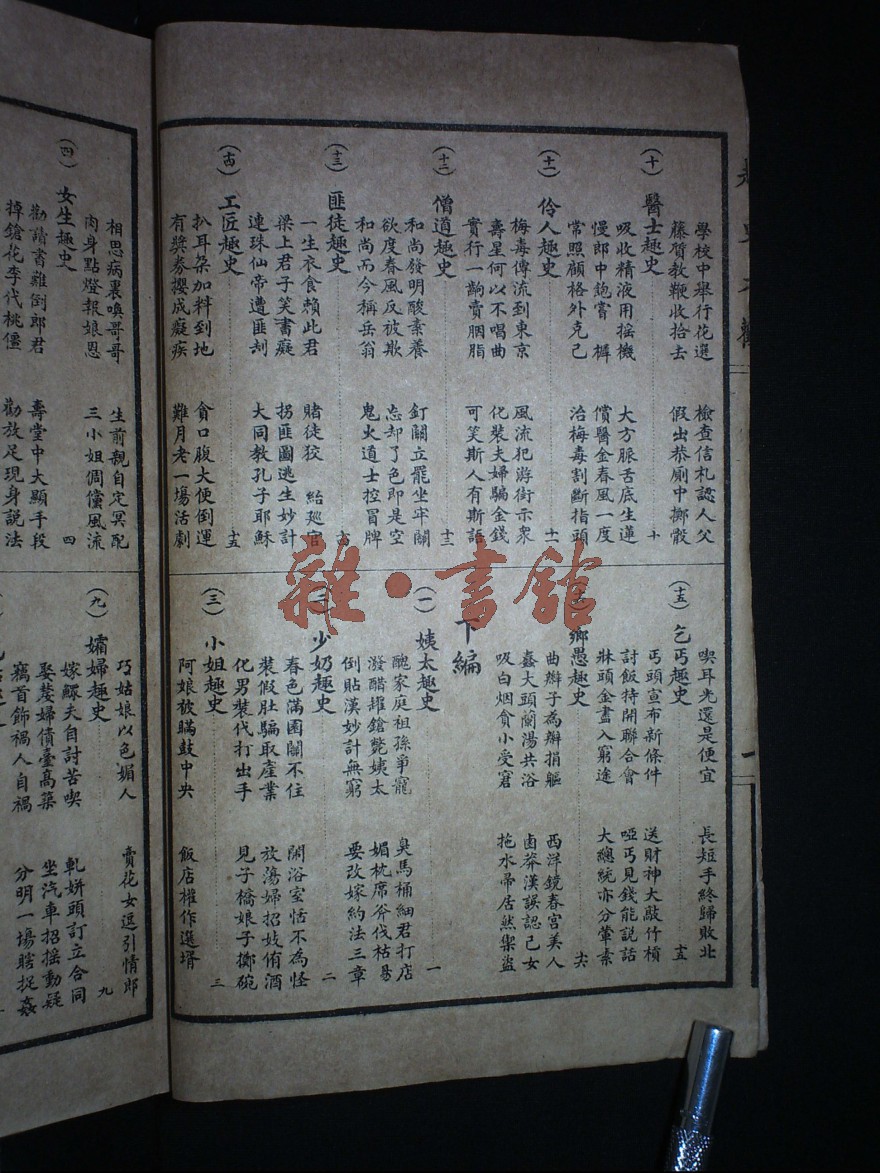 學校中舉行花選　檢查信札認人父
藤質教鞭收拾去　假出恭廁中擲骰
(十)　醫士趣史　十
吸收精液用搖機　大方脈舌底生蓮
慢郎中飽嘗　償醫金春風一度
常照顧格外克己　治梅毒割斷指頭
(十一)　伶人趣史　十一
梅毒傳流到東京　風流犯游街示衆
壽星何以不唱曲　化裝夫婦騙金錢
實行一齣賣胭脂　可笑斯人有斯語
(十二)　僧道趣史　十三
和尚發明酸素養　釘關立罷坐牢關
欲度春風反被欺　忘却了色即是空
和尚而今稱岳翁　鬼火道士控冒牌
(十三)　匪徒趣史
一生衣食賴此君　賭徒狡　給廵官
梁上君子笑書癡　拐匪圖逃生妙計
連珠仙帝遭匪刦　大同教孔子耶穌
(十四)　工匠趣史　十五
扒耳朶加料到地　貪口腹大便倒運
有獎券攖成癡疾　難月老一場活劇
喫耳光還是便宜　長短手終歸敗北
(十五)　乞丐趣史　十五
丐頭宣布新條件　送財神大敲竹槓
討飯特開聯合會　啞丐見錢能說話
牀頭金盡入窮途　大總統亦分葷素
鄉愚趣史　十六
曲辮子為辮捐軀　西洋鏡春宮美人
蠢大頭蘭湯共浴　鹵莽漢誤認己女
吸白烟貪小受窘　拖水帚居然禦盜
下編
(一)　姨太趣史　一
醜家庭祖孫爭寵　臭馬桶細君打店
潑醋罐鎗斃姨太　媚枕席斧伐枯易
倒貼漢妙計無窮　要改嫁約法三章
少奶趣史　二
春色滿園關不住　閙浴室恬不為怪
裝假肚騙取產業　放蕩婦招妓侑酒
化男裝代打出手　見子橋娘子擲碗
(三)　小姐趣史　三
阿娘被瞞鼓中央　飯店權作選壻
相思病裏喚哥哥　生前親自定冥配
肉身點燈報娘恩　三小姐倜儻風流
(四)　女生趣史　四
勸讀書難倒郎君　壽堂中大顯手段
掉鎗花李代桃僵　勸放足現身說法
巧姑娘以色媚人　賣花女逗引情郎
(九)　孀婦趣史　九
嫁鰥夫自討苦喫　軋姘頭訂立合同
娶嫠婦債臺高築　坐汽車招搖動疑
竊首飾禍人自禍　分明一場瞎捉姦
雜·書館